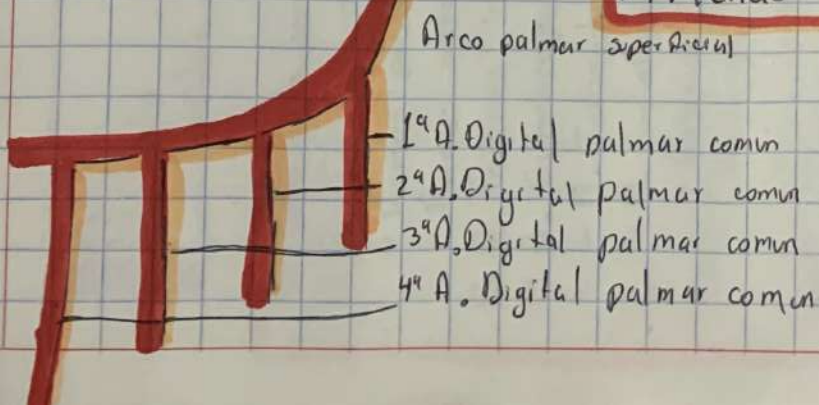 Arco palmar superficial
1ª A. Digital palmar comun
2ª A. Digital palmar comun
3ª A. Digital palmar comun
4ª A. Digital palmar comun